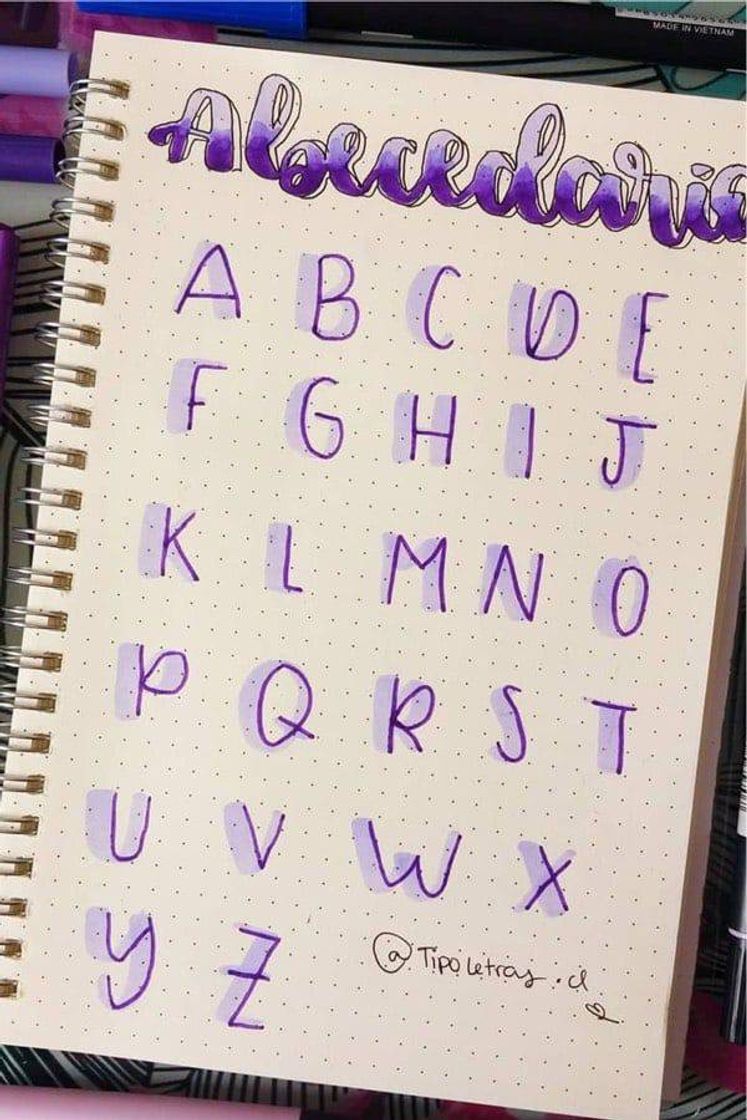 MADE IN VIETNAM
Abecedario
A B C D E
F G H I J
K L M N O
P Q R S T
U V W X
Y Z
@Tipoletras.cl